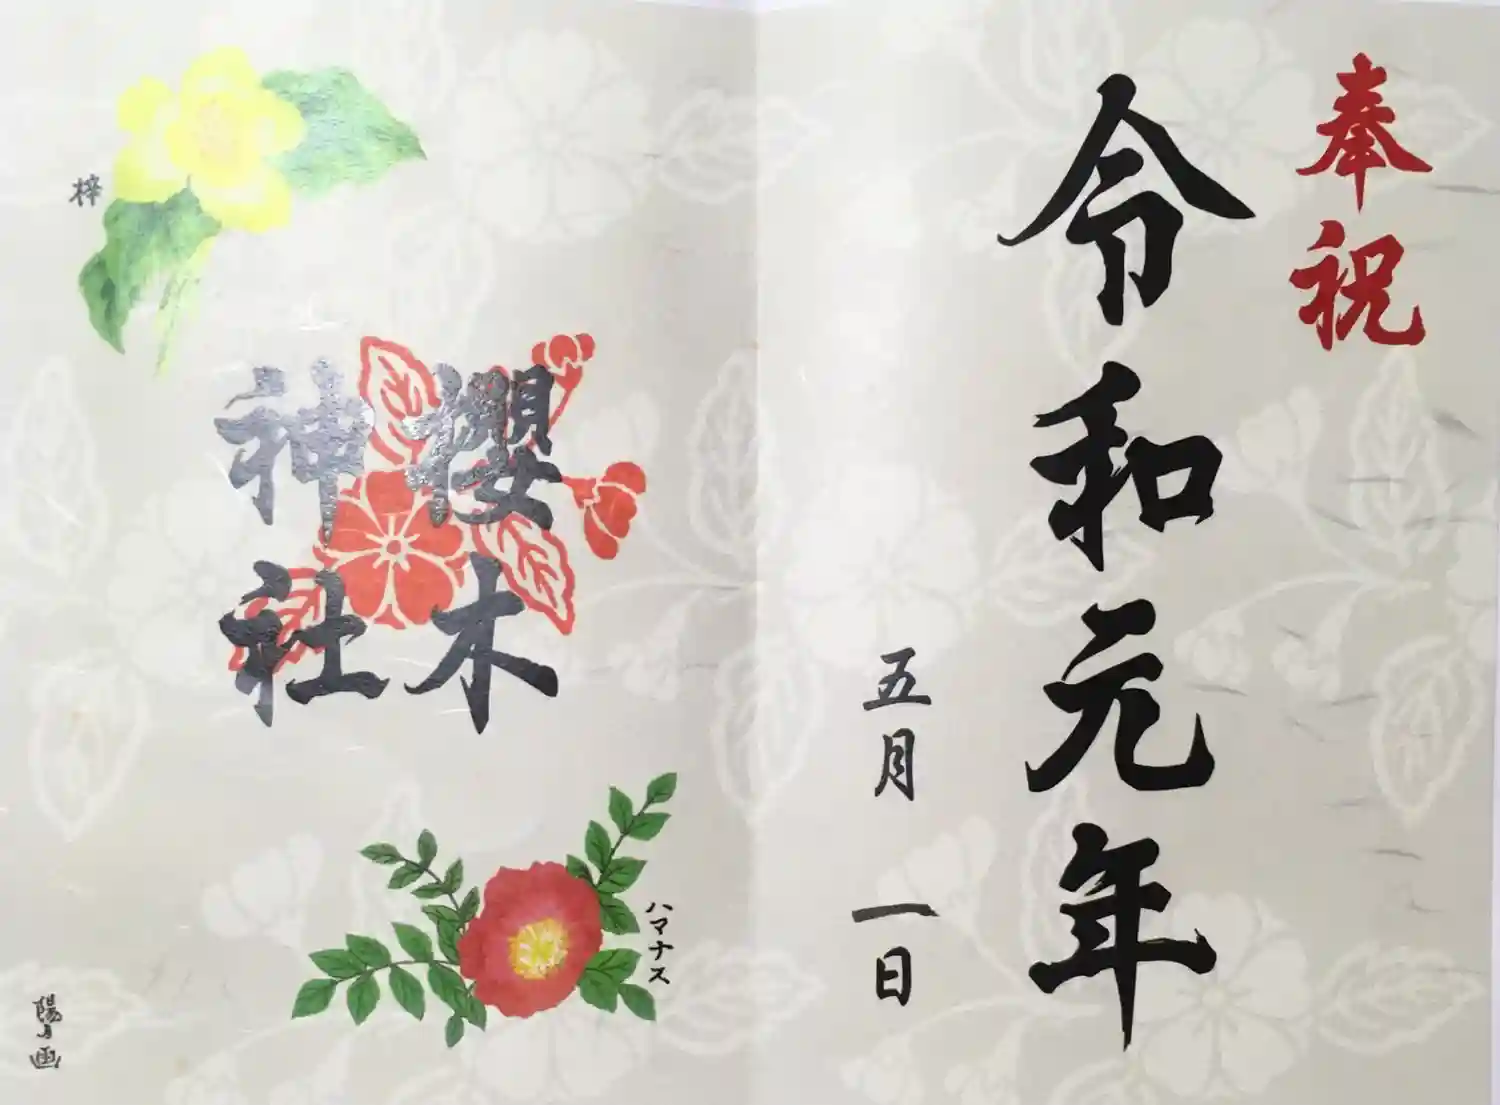 奉祝
令和元年
五月一日
櫻木
神社
梓
ハマナス
画